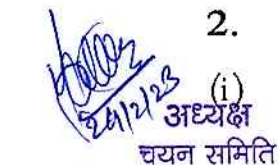 2.
(i)
24/2/23
अध्यक्ष
चयन समिति